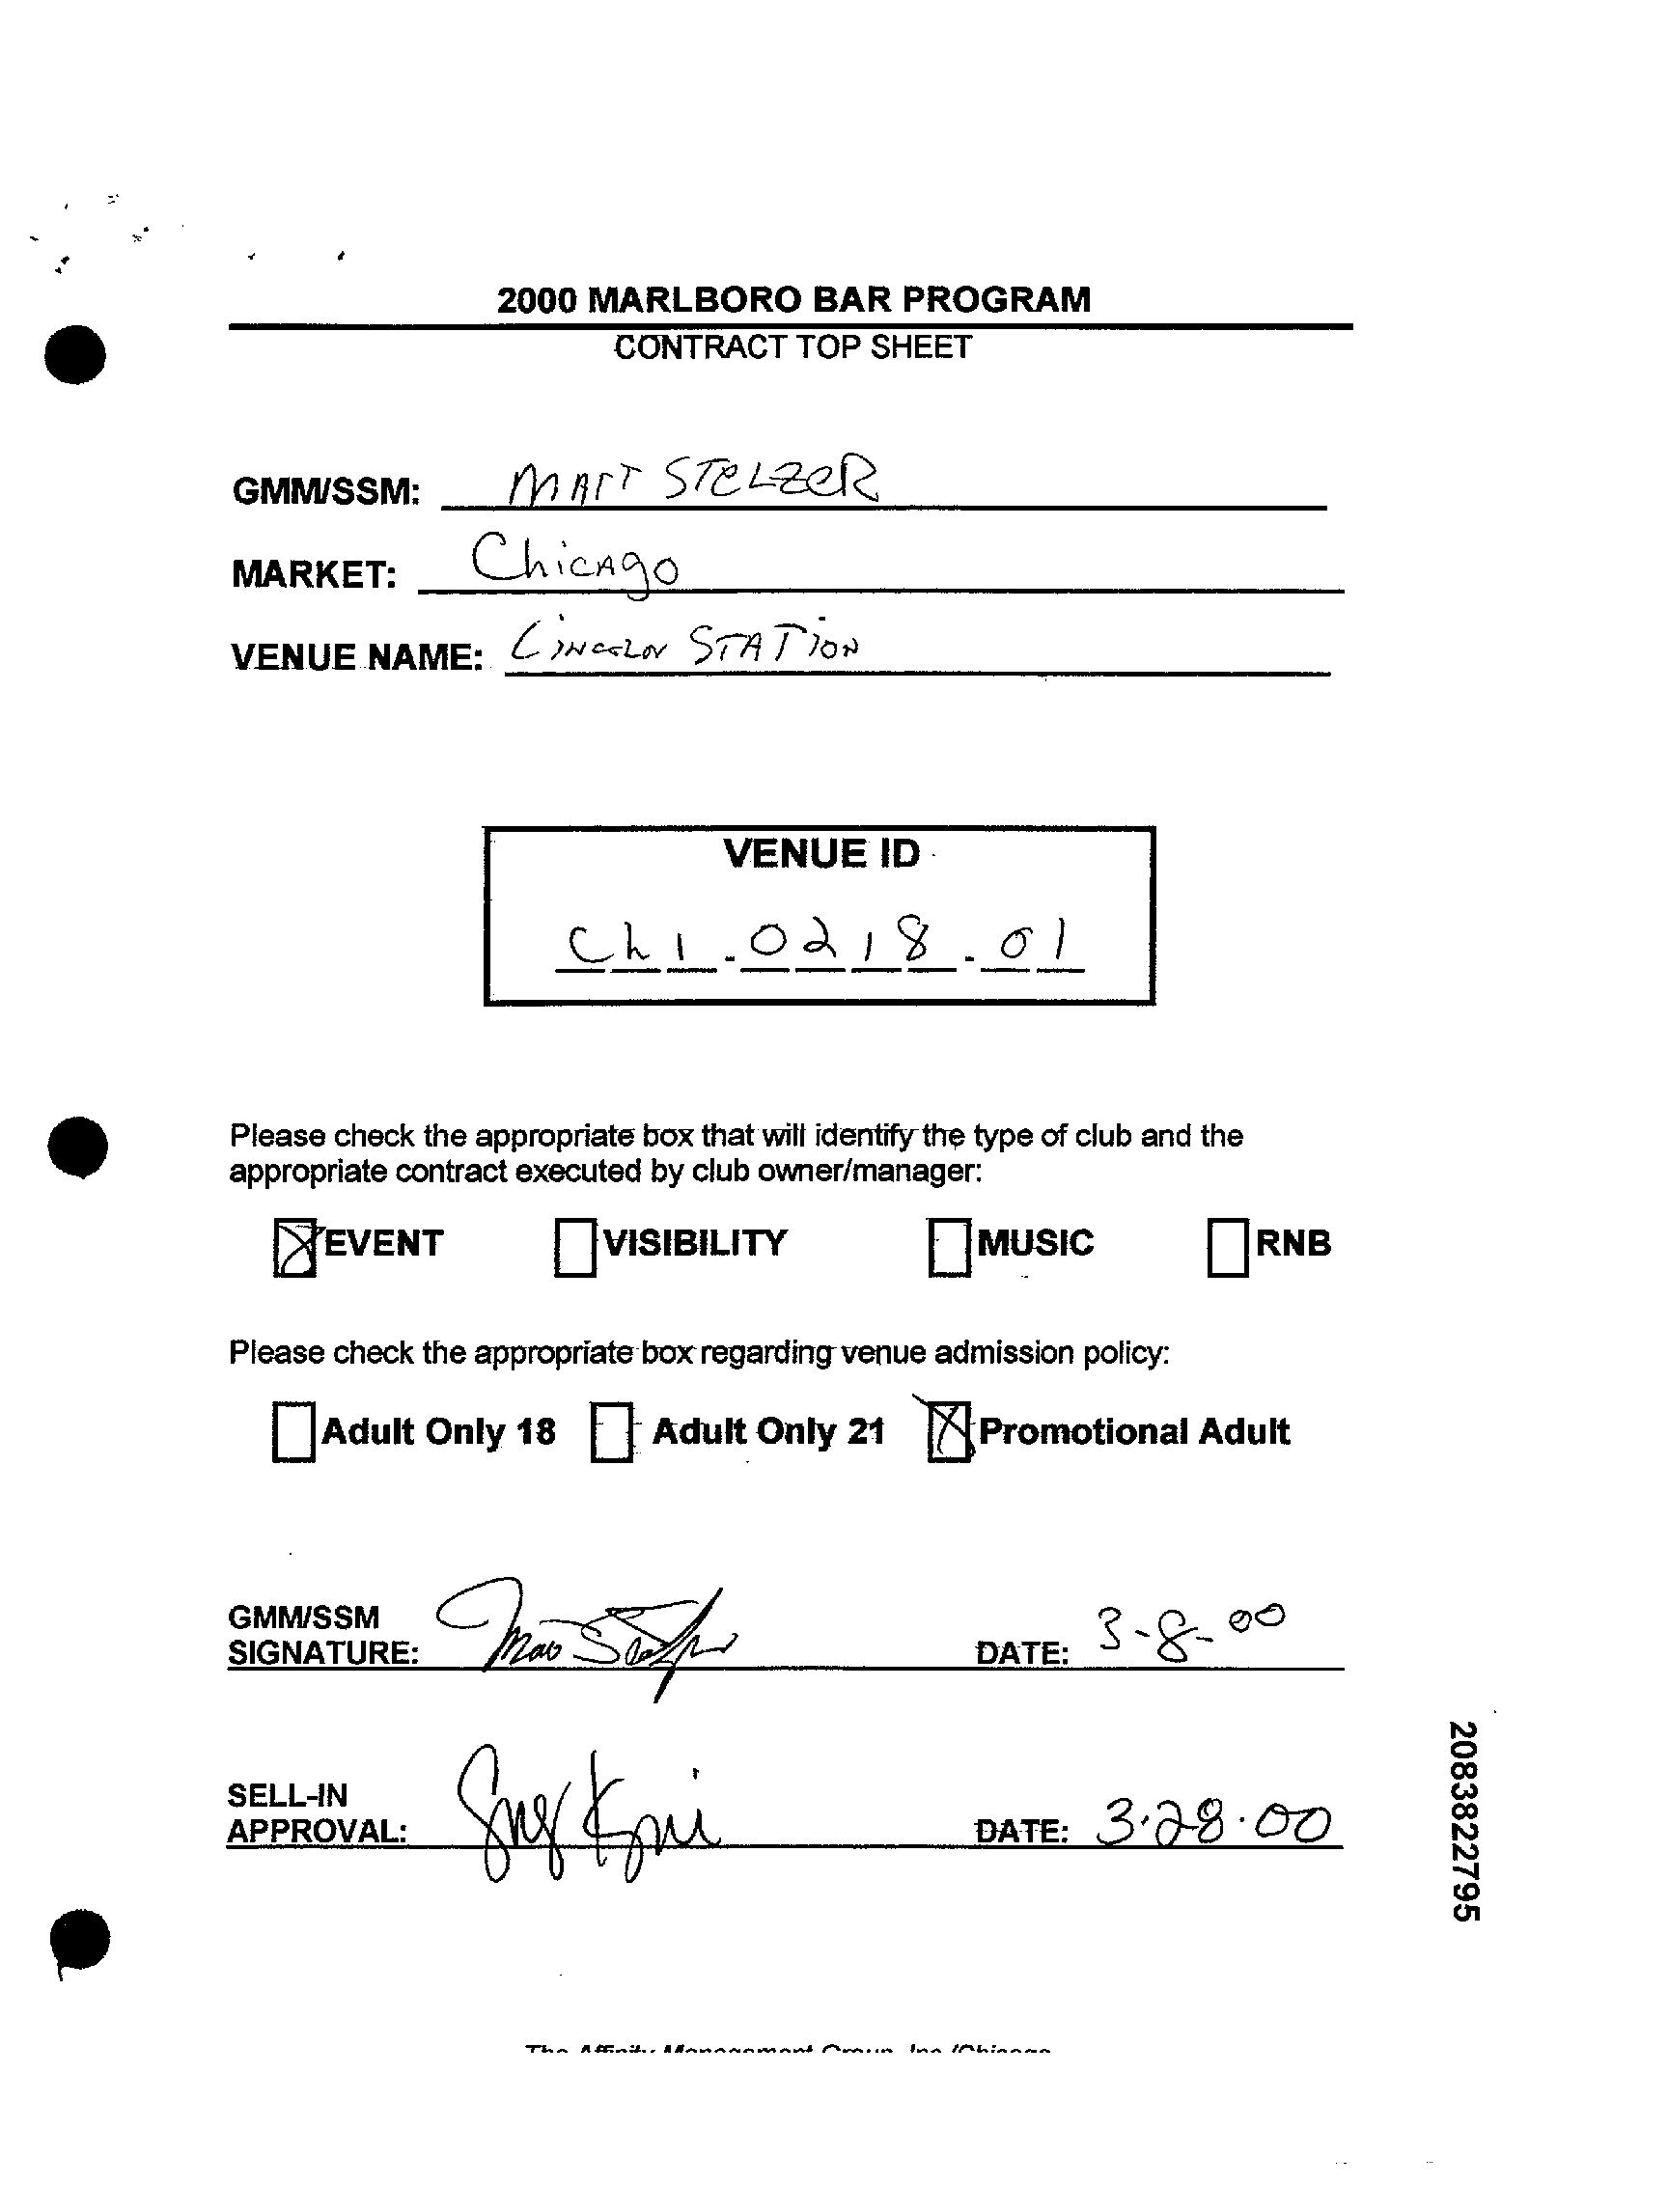 2000 MARLBORO BAR PROGRAM
CONTRACT TOP SHEET
GMM/SSM: MATT STELZER
MARKET: Chicago
VENUE NAME: LINCOLN STATION
VENUE ID
Ch1.0218.01
Please check the appropriate box that will identify the type of club and the
appropriate contract executed by club owner/manager:
EVENT VISIBILITY MUSIC RNB
Please check the appropriate box regarding venue admission policy:
Adult Only 18 Adult Only 21 Promotional Adult
GMM/SSM
SIGNATURE: DATE: 3-8-00
SELL-IN
APPROVAL: DATE: 3.28.00
2083822795
The Affinity Management Group, Inc./Chicago